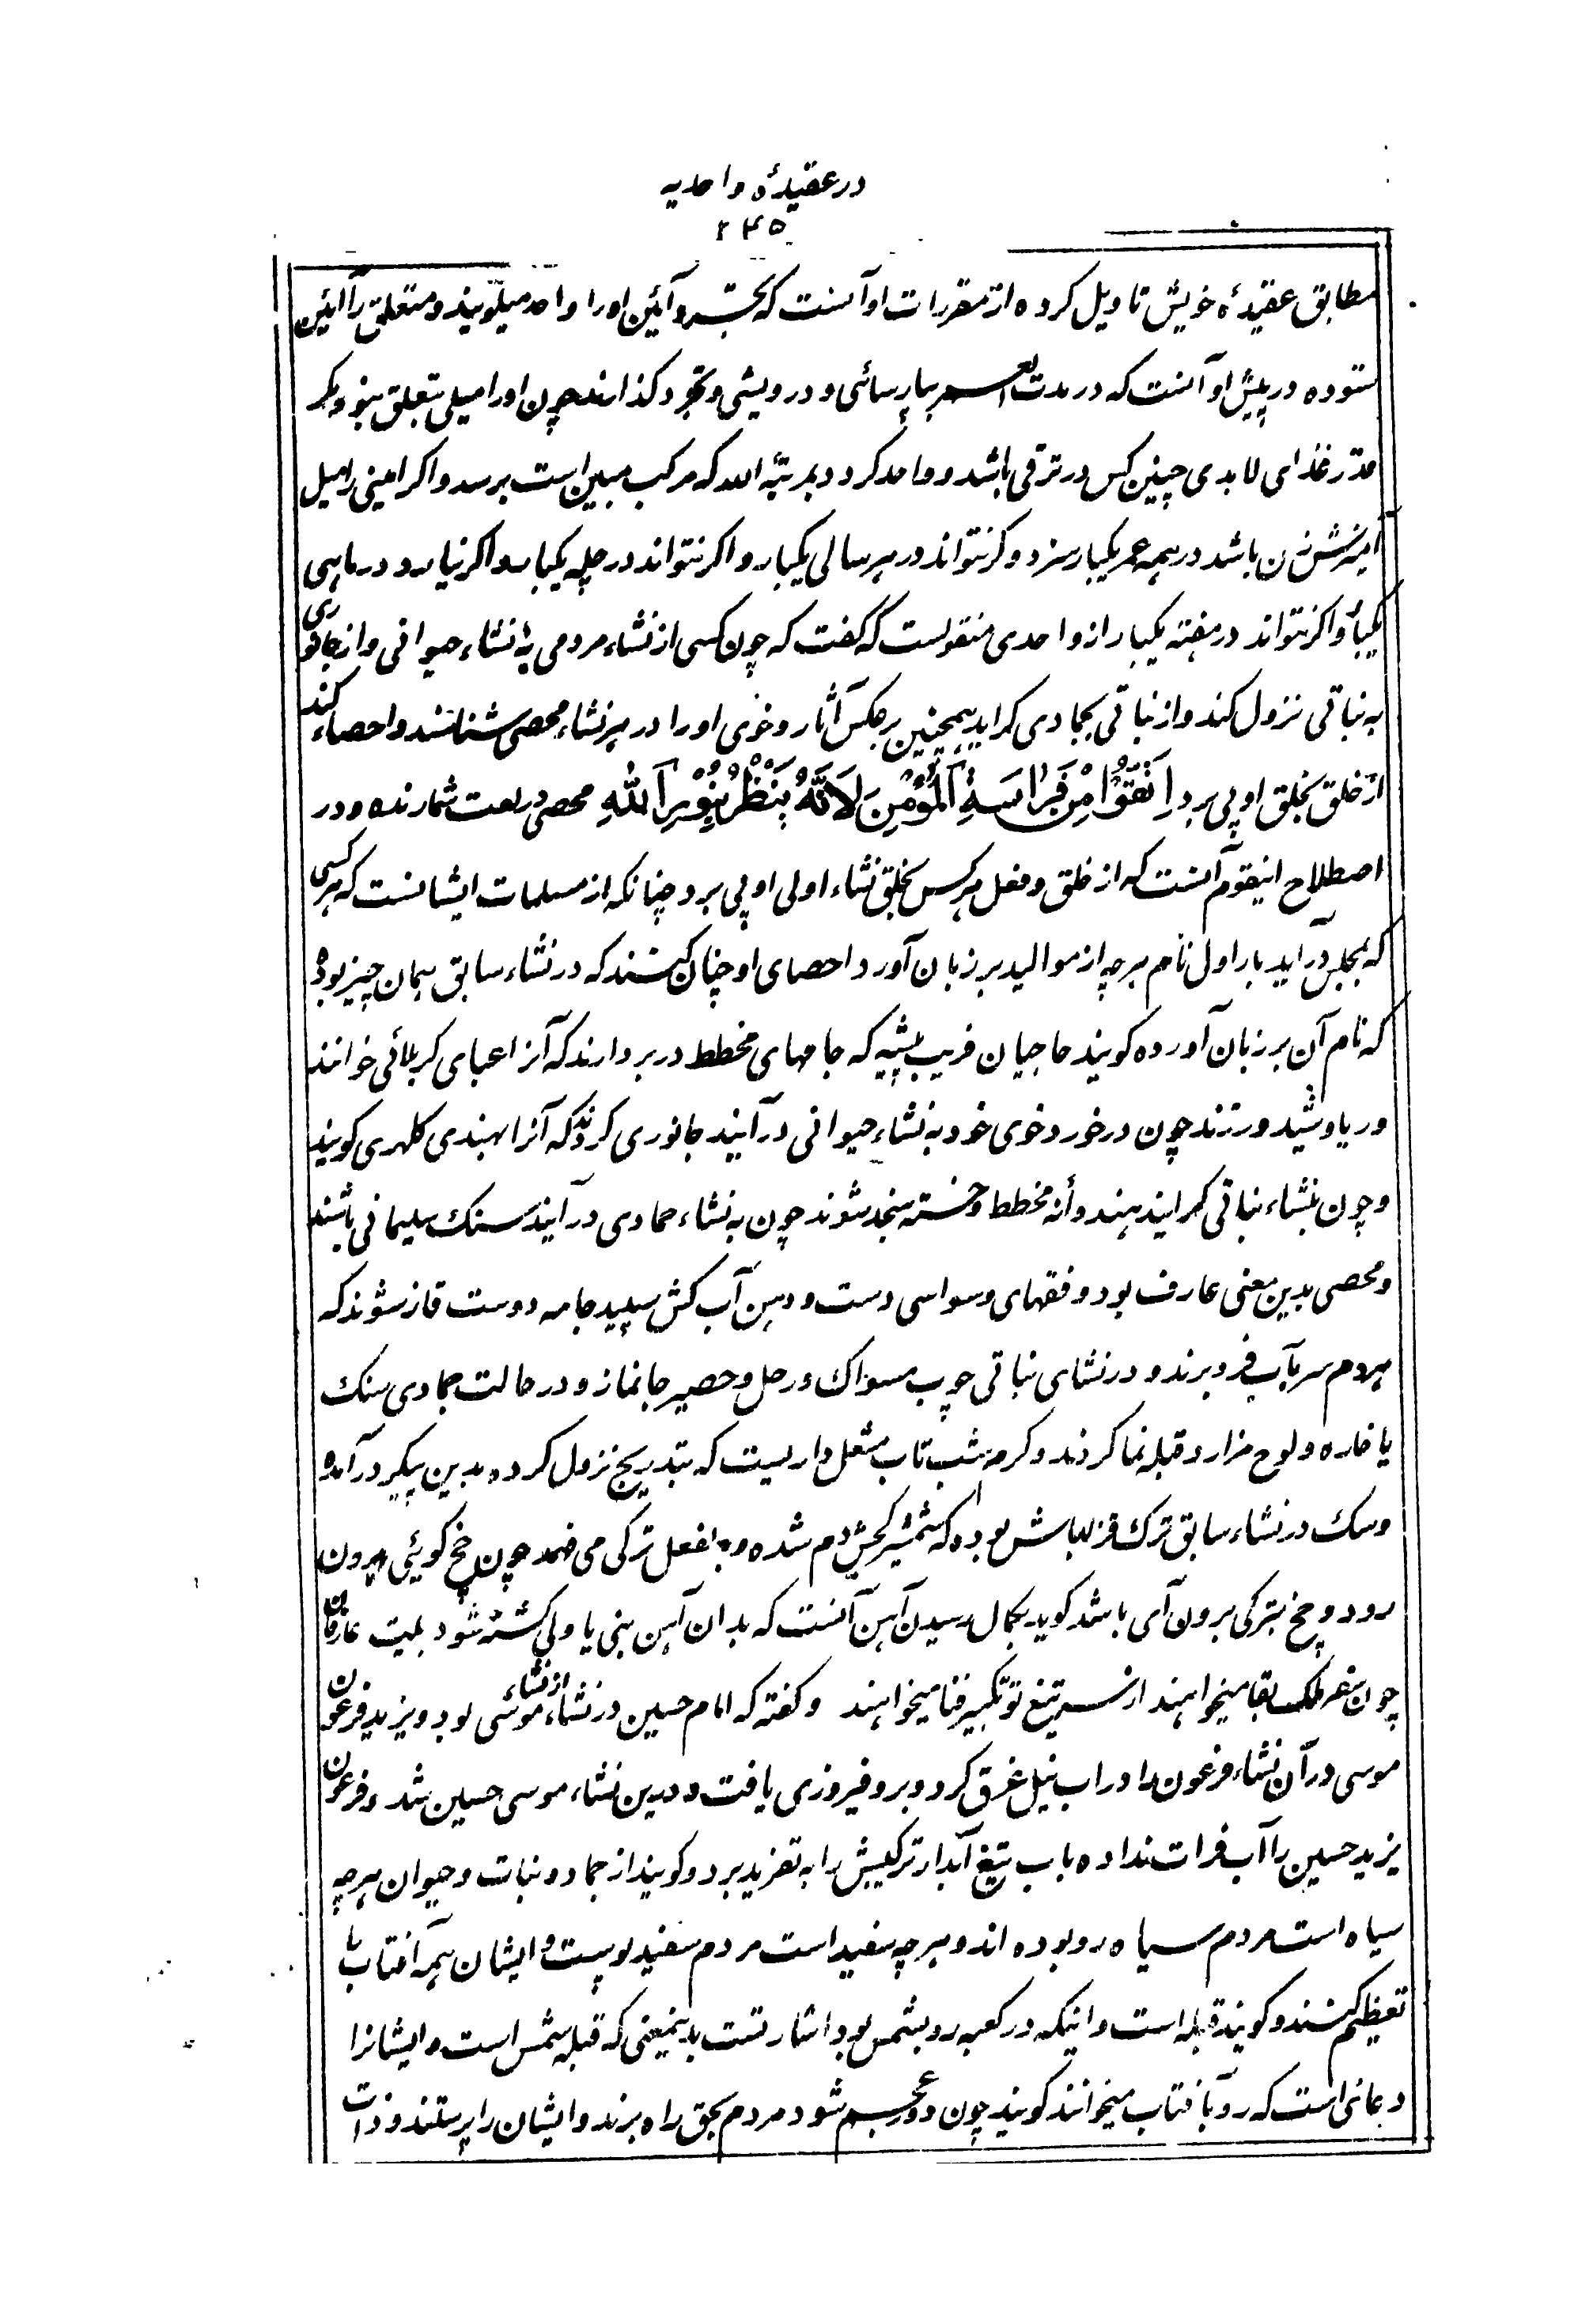 در عقیدهٔ واحدیه
۲۴۵
مطابق عقیدهٔ خویش تاویل کرده از مقررات او آنست که مجرد آئین او را واحد میگویند و متعلق را امین
ستوده در پیش او آنست که در مدت العمر بپارسائی و درویشی و تجرد گذارند چون او را میلی بتعلق نبود مگر
قدر غذای لابدی چنین کس در ترقی باشد و واحد کردد بمرتبه الله که مرکب مبین است برسد و اکر امینی را میل
آمیزش زن باشد در همه عمر یکبار سزد و کر نتواند در هر سالی یکبار و اکر نتواند در چله یکبار و اکر نیارد در ماهی
یکبار و اکر نتواند در هفته یکبار از واحدی منقولست که کفت که چون کسی از نشاء مردمی به نشاء حیوانی و از جانوری
به نباتی نزول کند و از نباتی بجمادی کراید همچنین برعکس آثار و خوی او را در هر نشاء محصی شناسند و احصاء کند
از خلق بخلق او پی برد اِتَّقُوا مِنْ فِرَاسَةِ الْمُؤْمِنِ لَاِنَّهُ يَنْظُرُ بِنُورِ اللّٰهِ محصی در لغت شمارنده و در
اصطلاح اینقوم آنست که از خلق و فعل هر کس بخلق نشاء اولی او پی برد چنانکه از مسلمات ایشانست که هر کسی
که بمجلس در آید بار اول نام هرچه از موالید بر زبان آورد احصای او چنان کنند که در نشاء سابق همان چیز بوده
که نام آن بر زبان آورده کویند حاجیان فریب پیشه که جامهای مخطط در بر دارند که آنرا عبای کربلائی خوانند
و ریا و شید ورزند چون در خورد خوی خود به نشاء حیوانی در آیند جانوری کردند که آنرا بهندی کلهری کویند
و چون بنشاء نباتی کرایند هندوانه مخطط و خسته سنجد شوند چون به نشاء جمادی در آیند سنک سلیمانی باشند
و محصی بدین معنی عارف بود و فقهای وسواسی دست و دهن آب کش سپید جامه دوست قاز شوند که
هردم سر بآب فرو برند و در نشای نباتی چوب مسواک و رحل و حصیر جانماز و در حالت جمادی سنک
یا خاره و لوح مزار و قبله نما کردند و کرم شب تاب مشعل داریست که بتدریج نزول کرده بدین پیکر در آمده
و سک در نشاء سابق ترک قزلباش بوده که شمشیر کجش دم شده و بالفعل ترکی می فهمد چون چخ کوئی بیرون
رود و چخ بترکی برون آی باشد کوید بکمال رسیدن آهن آنست که بدان آهن نبی یا ولی کشته شود بلیت عارفان
چون سفر ملک بقا میخواهند از سر تیغ تو تکبیر فنا میخواهند و کفته که امام حسین در نشاء از نشاء موسی بود و یزید فرعون
موسی در آن نشاء فرعون را در آب نیل غرق کرد و برو فیروزی یافت و درین نشاء موسی حسین شد و فرعون
یزید حسین را آب فرات نداده باب تیغ آبدار ترکیبش را به تفرید برد و کویند از جماد و نبات و حیوان هرچه
سیاه است مردم سیاه رو بوده اند و هرچه سفید است مردم سفید پوست و ایشان همه آفتاب را
تعظیم کنند و کویند قبله است و اینکه در کعبه رو بشمس بود اشارتست بدینمعنی که قبله شمس است و ایشانرا
دعائی است که رو بآفتاب میخوانند کویند چون دور عجم شود مردم بحق راه برند و ایشان را پرستند و ذات